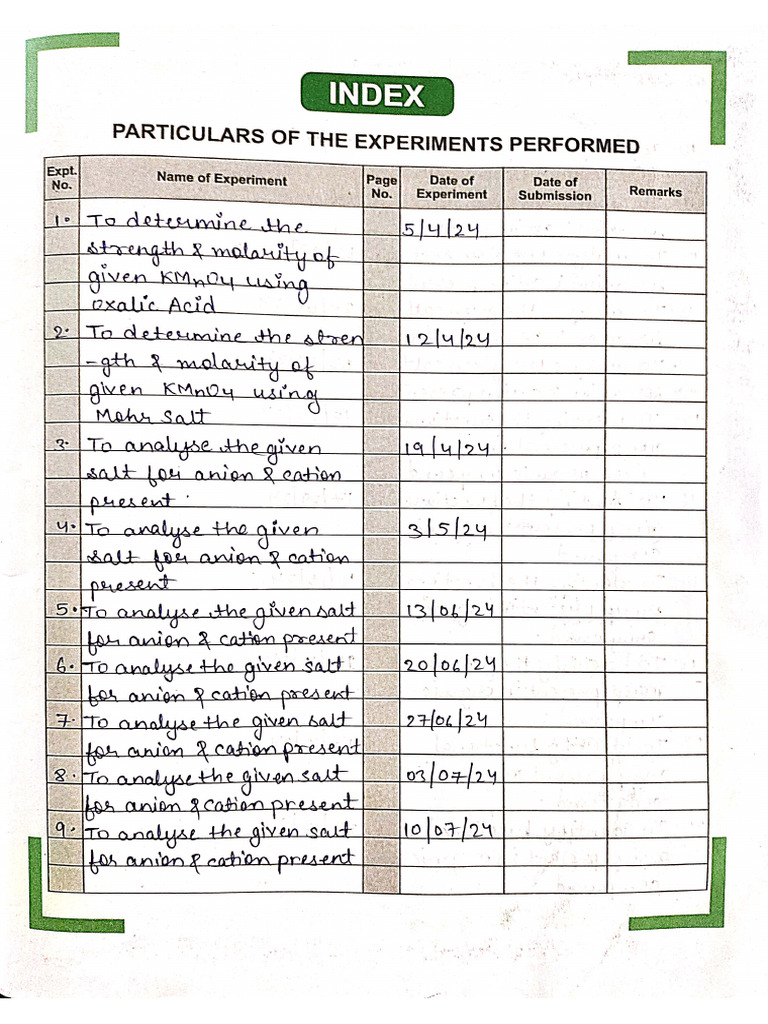 INDEX
PARTICULARS OF THE EXPERIMENTS PERFORMED
Expt. No. Name of Experiment Page No. Date of Experiment Date of Submission Remarks
1. To determine the 5/4/24
strength & molarity of
given KMnO4 using
Oxalic Acid
2. To determine the stren 12/4/24
-gth & molarity of
given KMnO4 using
Mohr Salt
3. To analyse the given 19/4/24
salt for anion & cation
present.
4. To analyse the given 3/5/24
salt for anion & cation
present
5. To analyse the given salt 13/06/24
for anion & cation present
6. To analyse the given salt 20/06/24
for anion & cation present
7. To analyse the given salt 27/06/24
for anion & cation present
8. To analyse the given salt 03/07/24
for anion & cation present
9. To analyse the given salt 10/07/24
for anion & cation present